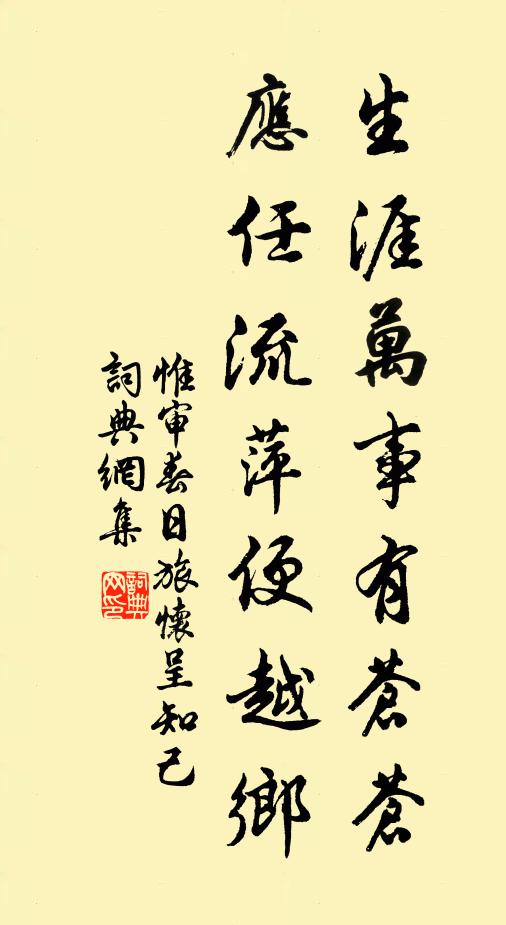 生涯萬事有蒼蒼
應任流萍便越鄉
惟审春日旅懷呈知己
詞典網集
詞典網印